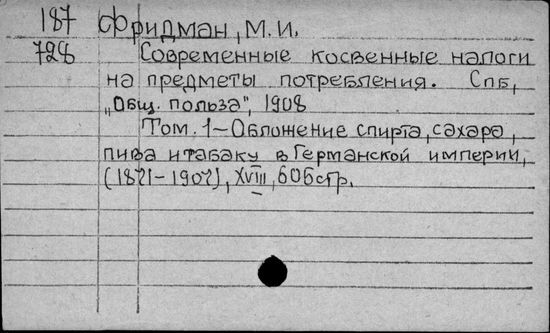 187 Фридман, М. И.
728 Современные косвенные налоги
на предметы потребления. Спб,
„Общ. польза", 1908
Том. 1 – Обложение спирта, сахара,
пива и табаку в Германской империи,
(1871-1907), XVIII, 606 стр.